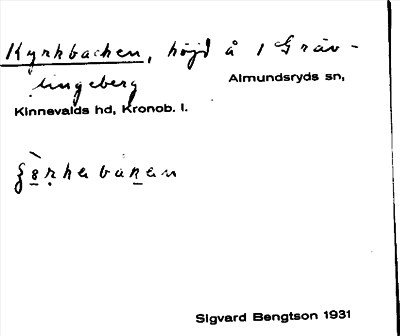 Kyrkbacken, höjd å 1 Gräv-
lingeberg Almundsryds sn,
Kinnevalds hd, Kronob. l.
Sigvard Bengtson 1931